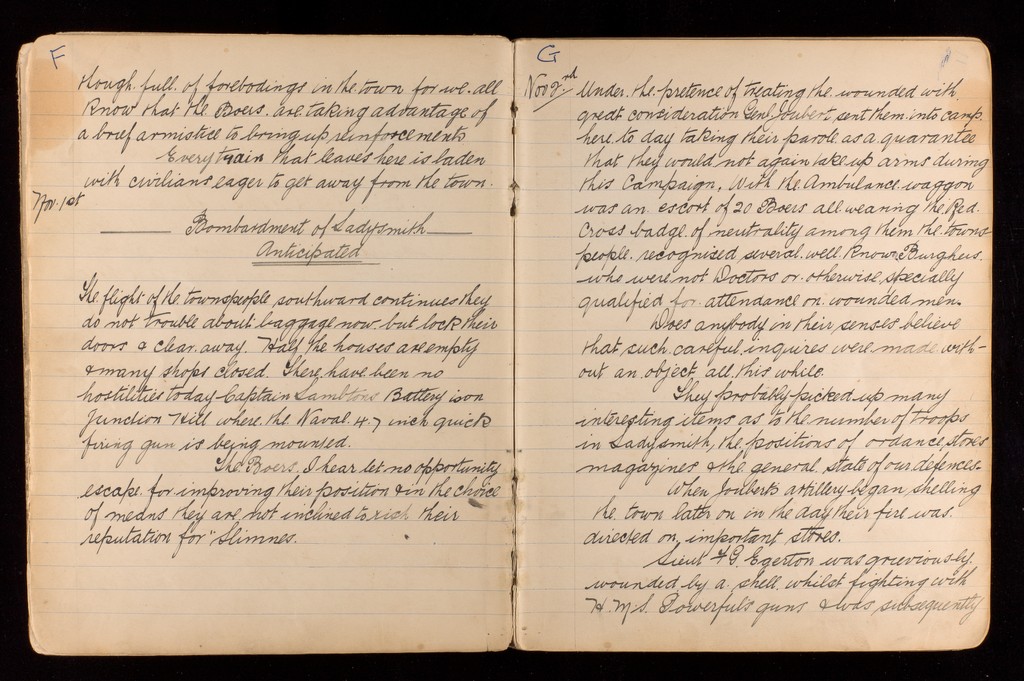 F
though full of forebodings in the town for we all
know that the Boers are taking advantage of
a brief armistice to bring up reinforcements
Every train that leaves here is laden
with civilians eager to get away from the town.
Nov. 1st
Bombardment of Ladysmith
Anticipated
The flight of the townspeople southward continues they
do not trouble about baggage now but lock their
doors & clear away. Half the houses are empty
& many shops closed. There have been no
hostilities today Captain Lambtons Battery is on
Junction Hill where the Naval 4.7 inch quick
firing gun is being mounted.
The Boers, I hear let no opportunity
escape for improving their position & in the choice
of means they are not inclined to risk their
reputation for "Slimnes.
G
Nov 2nd
Under the pretence of treating the wounded with
great consideration Genl Joubert sent them into camp
here to day taking their parole as a guarantee
that they would not again take up arms during
this Campaign. With the Ambulance waggon
was an escort of 20 Boers all wearing the Red
Cross badge of neutrality among them the towns
people recognised several well known Burghers
who were not Doctors or otherwise specially
qualified for attendance on wounded men.
Does anybody in their senses believe
that such careful inquires were made with-
out an object all this while.
They probably picked up many
interesting items as to the number of troops
in Ladysmith, the positions of ordance, stores
magazines & the general state of our defences.
When Jouberts artillery began shelling
the town latter on in the day their fire was
directed on important stores.
Lieut F G Egerton was grieviously
wounded by a shell whilst fighting with
H.M.S. Powerfuls guns & was subsequently